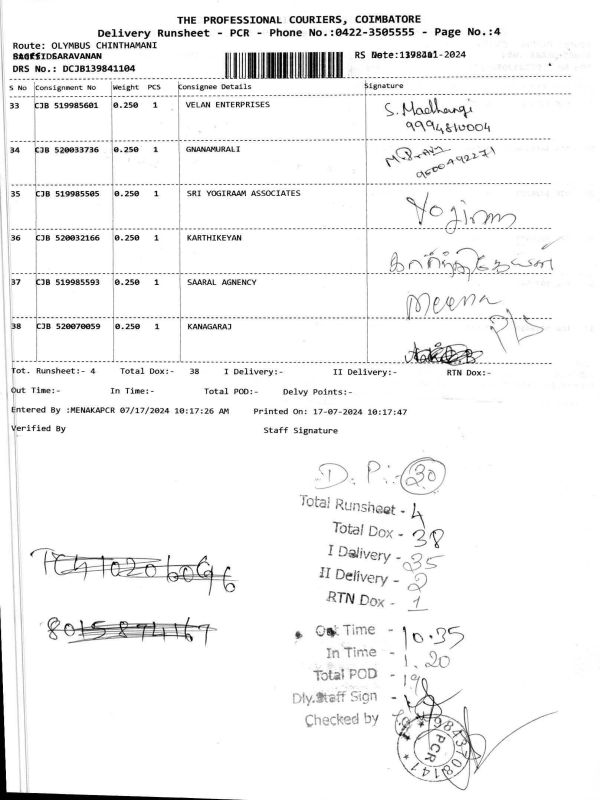 THE PROFESSIONAL COURIERS, COIMBATORE
Delivery Runsheet - PCR - Phone No.:0422-3505555 - Page No.:4
Route: OLYMBUS CHINTHAMANI
SARAVANAN
RS No
-2024
DRS No.: DCJB139841104
S No Consignment No Weight PCS Consignee Details Signature
33 CJB 519985601 0.250 1 VELAN ENTERPRISES S. Madhangi
9994810004
34 CJB 520033736 0.250 1 GNANAMURALI
9600492271
35 CJB 519985505 0.250 1 SRI YOGIRAAM ASSOCIATES
36 CJB 520032166 0.250 1 KARTHIKEYAN கார்த்திகேயன்
37 CJB 519985593 0.250 1 SAARAL AGNENCY Meena
38 CJB 520070059 0.250 1 KANAGARAJ
Tot. Runsheet:- 4 Total Dox:- 38 I Delivery:- II Delivery:- RTN Dox:-
Out Time:- In Time:- Total POD:- Delvy Points:-
Entered By :MENAKAPCR 07/17/2024 10:17:26 AM Printed On: 17-07-2024 10:17:47
Verified By Staff Signature
D. P:- 30
Total Runsheet - 4
Total Dox - 38
I Delivery - 35
II Delivery - 2
RTN Dox - 1
Out Time - 10.35
In Time - 1.20
Total POD -
Dly.Staff Sign -
Checked by
8015874167
PCR
9843708141